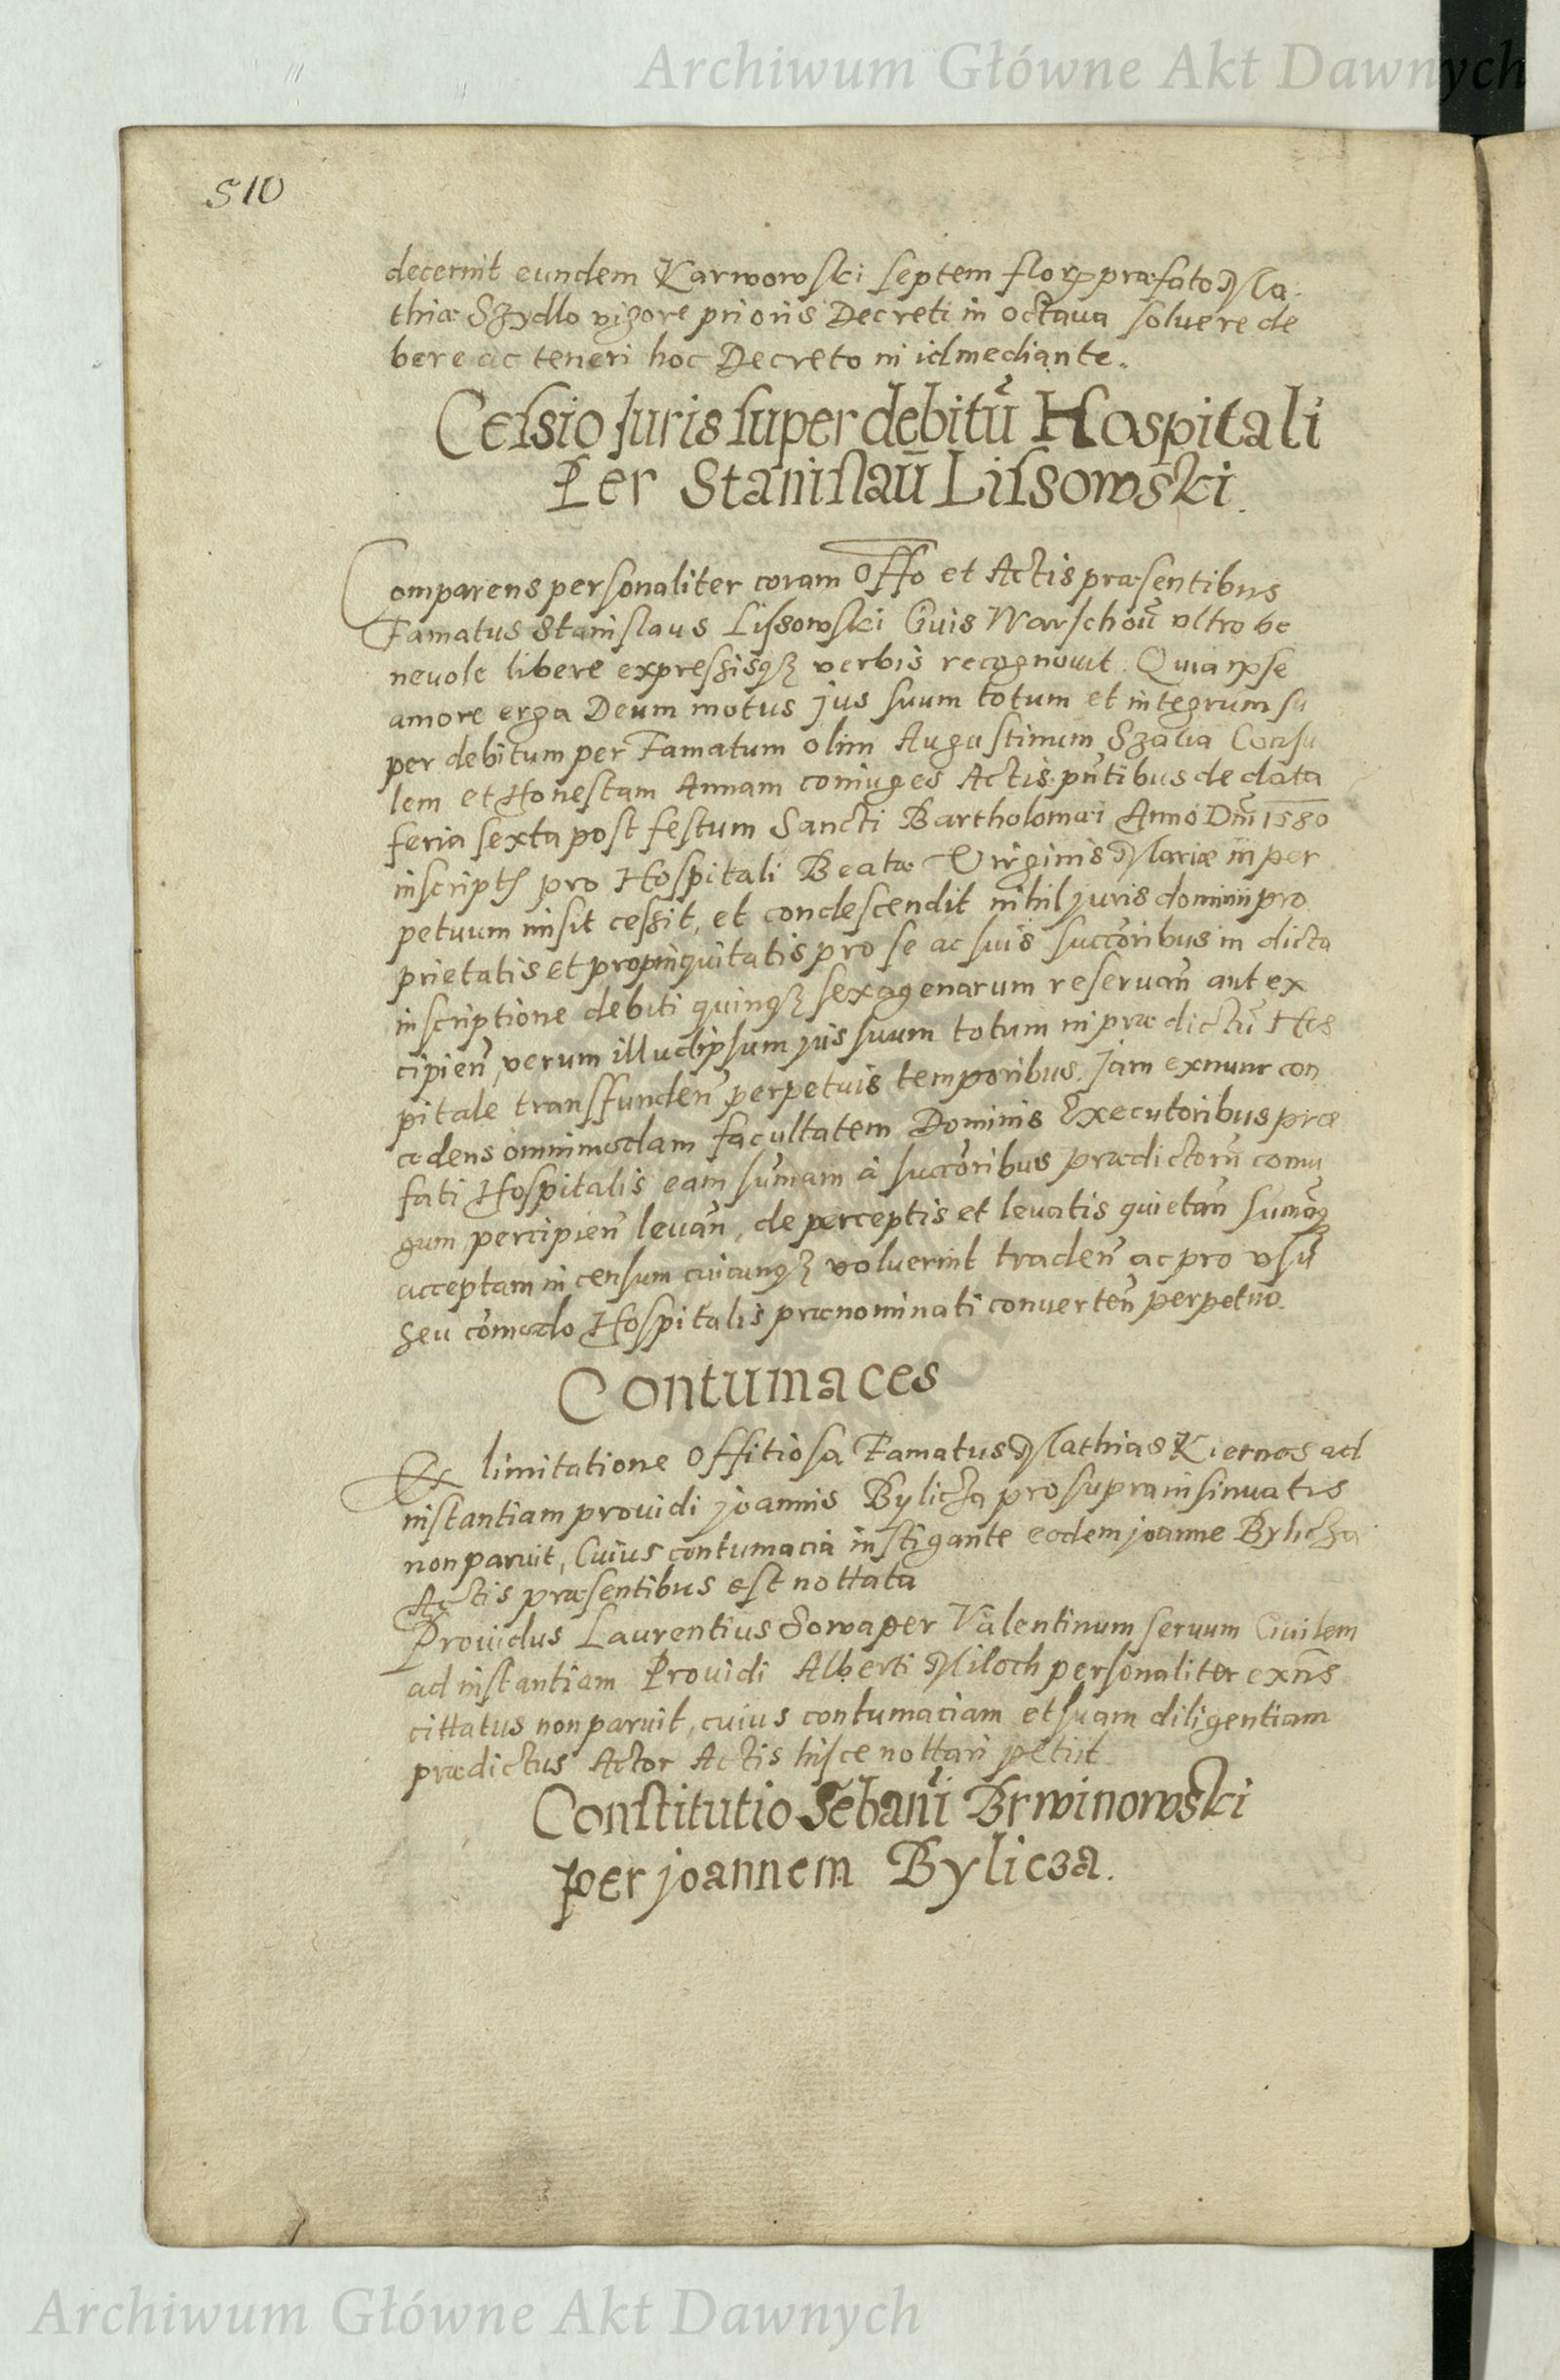 Archiwum Główne Akt Dawnych
510
decernit eundem Karwowski septem flor præfato Ma
thiæ Szydlo vigore prioris Decreti in octava soluere de
bere ac teneri hoc Decreto in id mediante.
Cessio Juris super debitū Hospitali
Per Stanislaū Lissowski.
Comparens personaliter coram Offo et Actis præsentibus
Famatus Stanislaus Lissowski Ciuis Warschoū vltro be
neuole libere expressisqȝ verbis recognouit. Quia ipse
amore erga Deum motus jus suum totum et integrum su
per debitum per Famatum olim Augustinum Szalia Consu
lem et Honestam Annam coniuges Actis pn̄tibus de data
feria sexta post festum Sancti Bartholomæi Anno Dn̄i 1580
inscript pro Hospitali Beatæ Virginis Mariæ in per
petuum misit cessit, et condescendit nihil juris dominii pro
prietatis et propinquitatis pro se ac suis succoribus in dicta
inscriptione debiti quinqȝ sexagenarum reseruan̄ aut ex
cipien̄, verum illud ipsum jus suum totum in prædictū Hos
pitale transffunden̄ perpetuis temporibus. Jam exnunc con
cedens omnimodam facultatem Dominis Executoribus præ
fati Hospitalis eam sum̄am à succoribus prædictorū coniu
gum percipien̄ leuan̄, de perceptis et leuatis quietan̄ sum̄aqȝ
acceptam in censum cuicunqȝ voluerint traden̄ ac pro vsū
seu com̄odo Hospitalis prænominati conuerten̄ perpetuo.
Contumaces
Ex limitatione Offitiosa Famatus Mathias Kiernos ad
instantiam prouidi joannis Bylicza pro suprainsinuatis
non paruit, Cuius contumacia instigante eodem joanne Bylicza
Actis præsentibus est nottata
Prouidus Laurentius Sowa per Valentinum seruum Ciuilem
ad instantiam Prouidi Alberti Miloch personaliter exn̄s
cittatus non paruit, cuius contumaciam et suam diligentiam
prædictus Actor Actis hisce nottari petiit
Constitutio Sebani Brwinowski
per joannem Bylicza.
Archiwum Główne Akt Dawnych